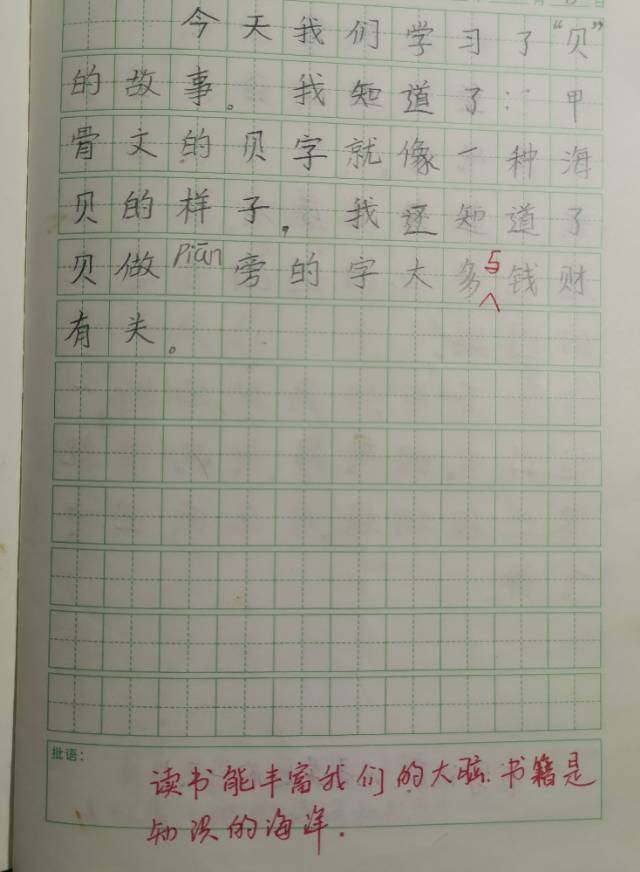 今天我们学习了“贝”
的故事。我知道了：甲
骨文的贝字就像一种海
贝的样子，我还知道了
贝做piān旁的字大多与钱财
有关。
批语：
读书能丰富我们的大脑.书籍是
知识的海洋.